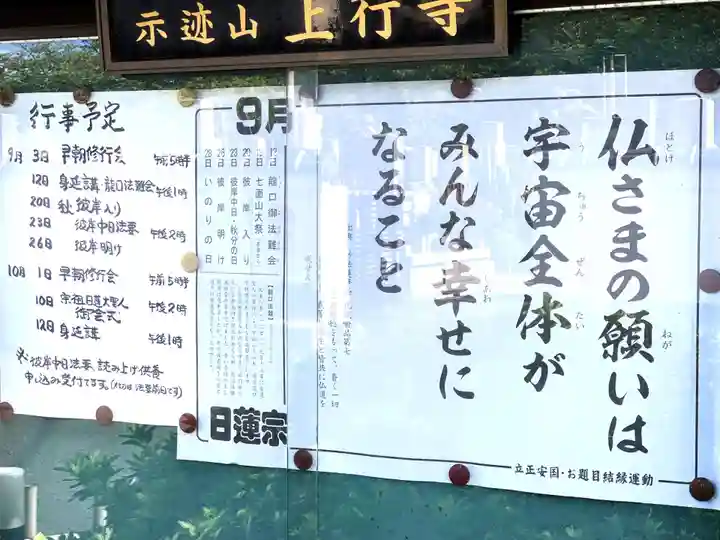 示迹山 上行寺
行事予定
9月 3日 早朝修行会 午前5時
12日 身延講・龍口法難会 午後1時
20日 秋彼岸入り
23日 彼岸中日法要 午後2時
26日 彼岸明け
10月 1日 早朝修行会 午前5時
10日 宗祖日蓮大聖人
御会式 午後2時
12日 身延講 午後1時
※彼岸中日法要、読み上げ供養
申し込み受付てます。
9月
12日 龍口御法難会
七面山大祭
20日 彼岸入り
23日 彼岸中日・秋分の日
26日 彼岸明け
28日 いのりの日
日蓮宗
仏さまの願いは
ほとけ ねが
宇宙全体が
うちゅうぜんたい
みんな幸せに
しあわ
なること
立正安国・お題目結縁運動